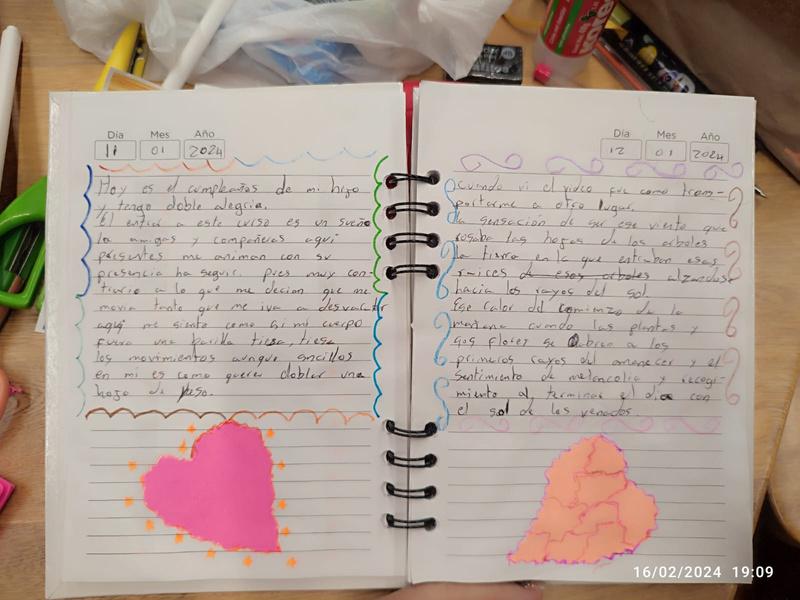 Día Mes Año
11 01 2024
Hoy es el cumpleaños de mi hijo
y tengo doble alegria.
El entrar a este curso es un sueño
las amigas y compañeras aqui
presentes me animan con su
presencia ha seguir. pues muy con-
trario a lo que me decian que me
movia tanto que me iva a desvaratar
aqui me siento como si mi cuerpo
fuera una tiesa, tiesa
los movimientos aunque sncillos
en mi es como querer doblar una
hoja de yeso.
Día Mes Año
12 01 2024
cuando vi el video fue como trans-
portarme a otro lugar.
la sensación de ser ese viento que
rosaba las hojas de los arboles
la tierra en la que entraban esas
raices de esos arboles alzandose
hacia los rayos del sol
Ese calor del comienzo de la
mañana cuando las plantas y
sus flores se abren a los
primeros rayos del amanecer y el
sentimiento de melancolia y recogi-
miento al terminar el dia con
el sol de los venados.
16/02/2024 19:09